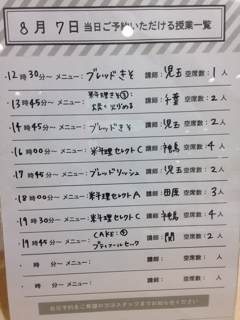 8月7日 当日ご予約いただける授業一覧
・12時30分〜 メニュー：ブレッドきそ 講師：児玉 空席数：1人
・13時45分〜 メニュー：料理きそ③： 講師：千葉 空席数：2人
炊く 炒める
・14時45分〜 メニュー：ブレッドきそ 講師：児玉 空席数：2人
・16時00分〜 メニュー：料理セレクトC 講師：神馬 空席数：4人
・17時45分〜 メニュー：ブレッドリッシュ 講師：児玉 空席数：2人
・18時00分〜 メニュー：料理セレクトA 講師：田原 空席数：3人
・19時30分〜 メニュー：料理セレクトC 講師：神馬 空席数：4人
・19時45分〜 メニュー：CAKE： 講師：関 空席数：2人
プティフールセック
・ 時 分〜 メニュー： 講師： 空席数： 人
・ 時 分〜 メニュー： 講師： 空席数： 人
当日予約をご希望の方はスタッフまでお知らせください